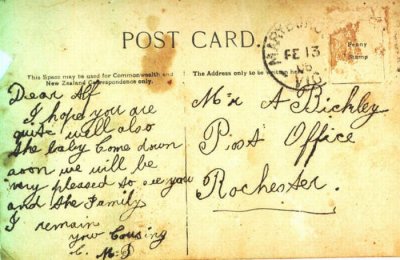 POST CARD.
This Space may be used for Commonwealth and
New Zealand Correspondence only.
The Address only to be written here.
Penny
Stamp
FE 13
06
VIC
Dear Alf
I hope you are
quite well also
the baby Come down
soon we will be
very pleased to see you
and the Family
I remain
your Cousing
Mr A Bickley
Post Office
Rochester.